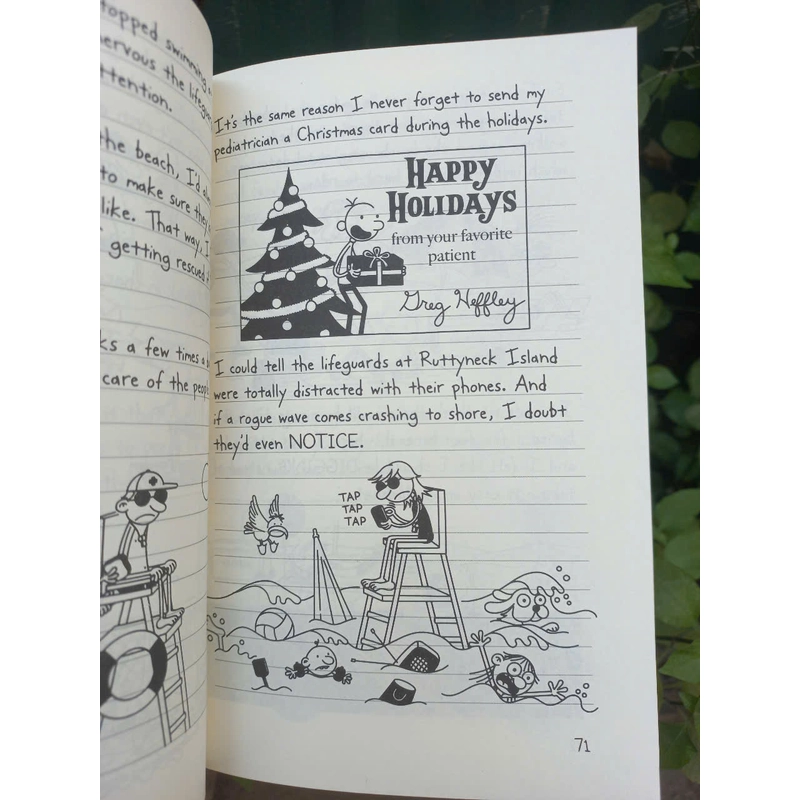 topped swimming
nervous the lifeguard
ttention.
the beach, I'd
to make sure they
like. That way, I
getting rescued
ks a few times a
care of the people
It's the same reason I never forget to send my
pediatrician a Christmas card during the holidays.
HAPPY
HOLIDAYS
from your favorite
patient
Greg Heffley
I could tell the lifeguards at Ruttyneck Island
were totally distracted with their phones. And
if a rogue wave comes crashing to shore, I doubt
they'd even NOTICE.
TAP
TAP
TAP
71